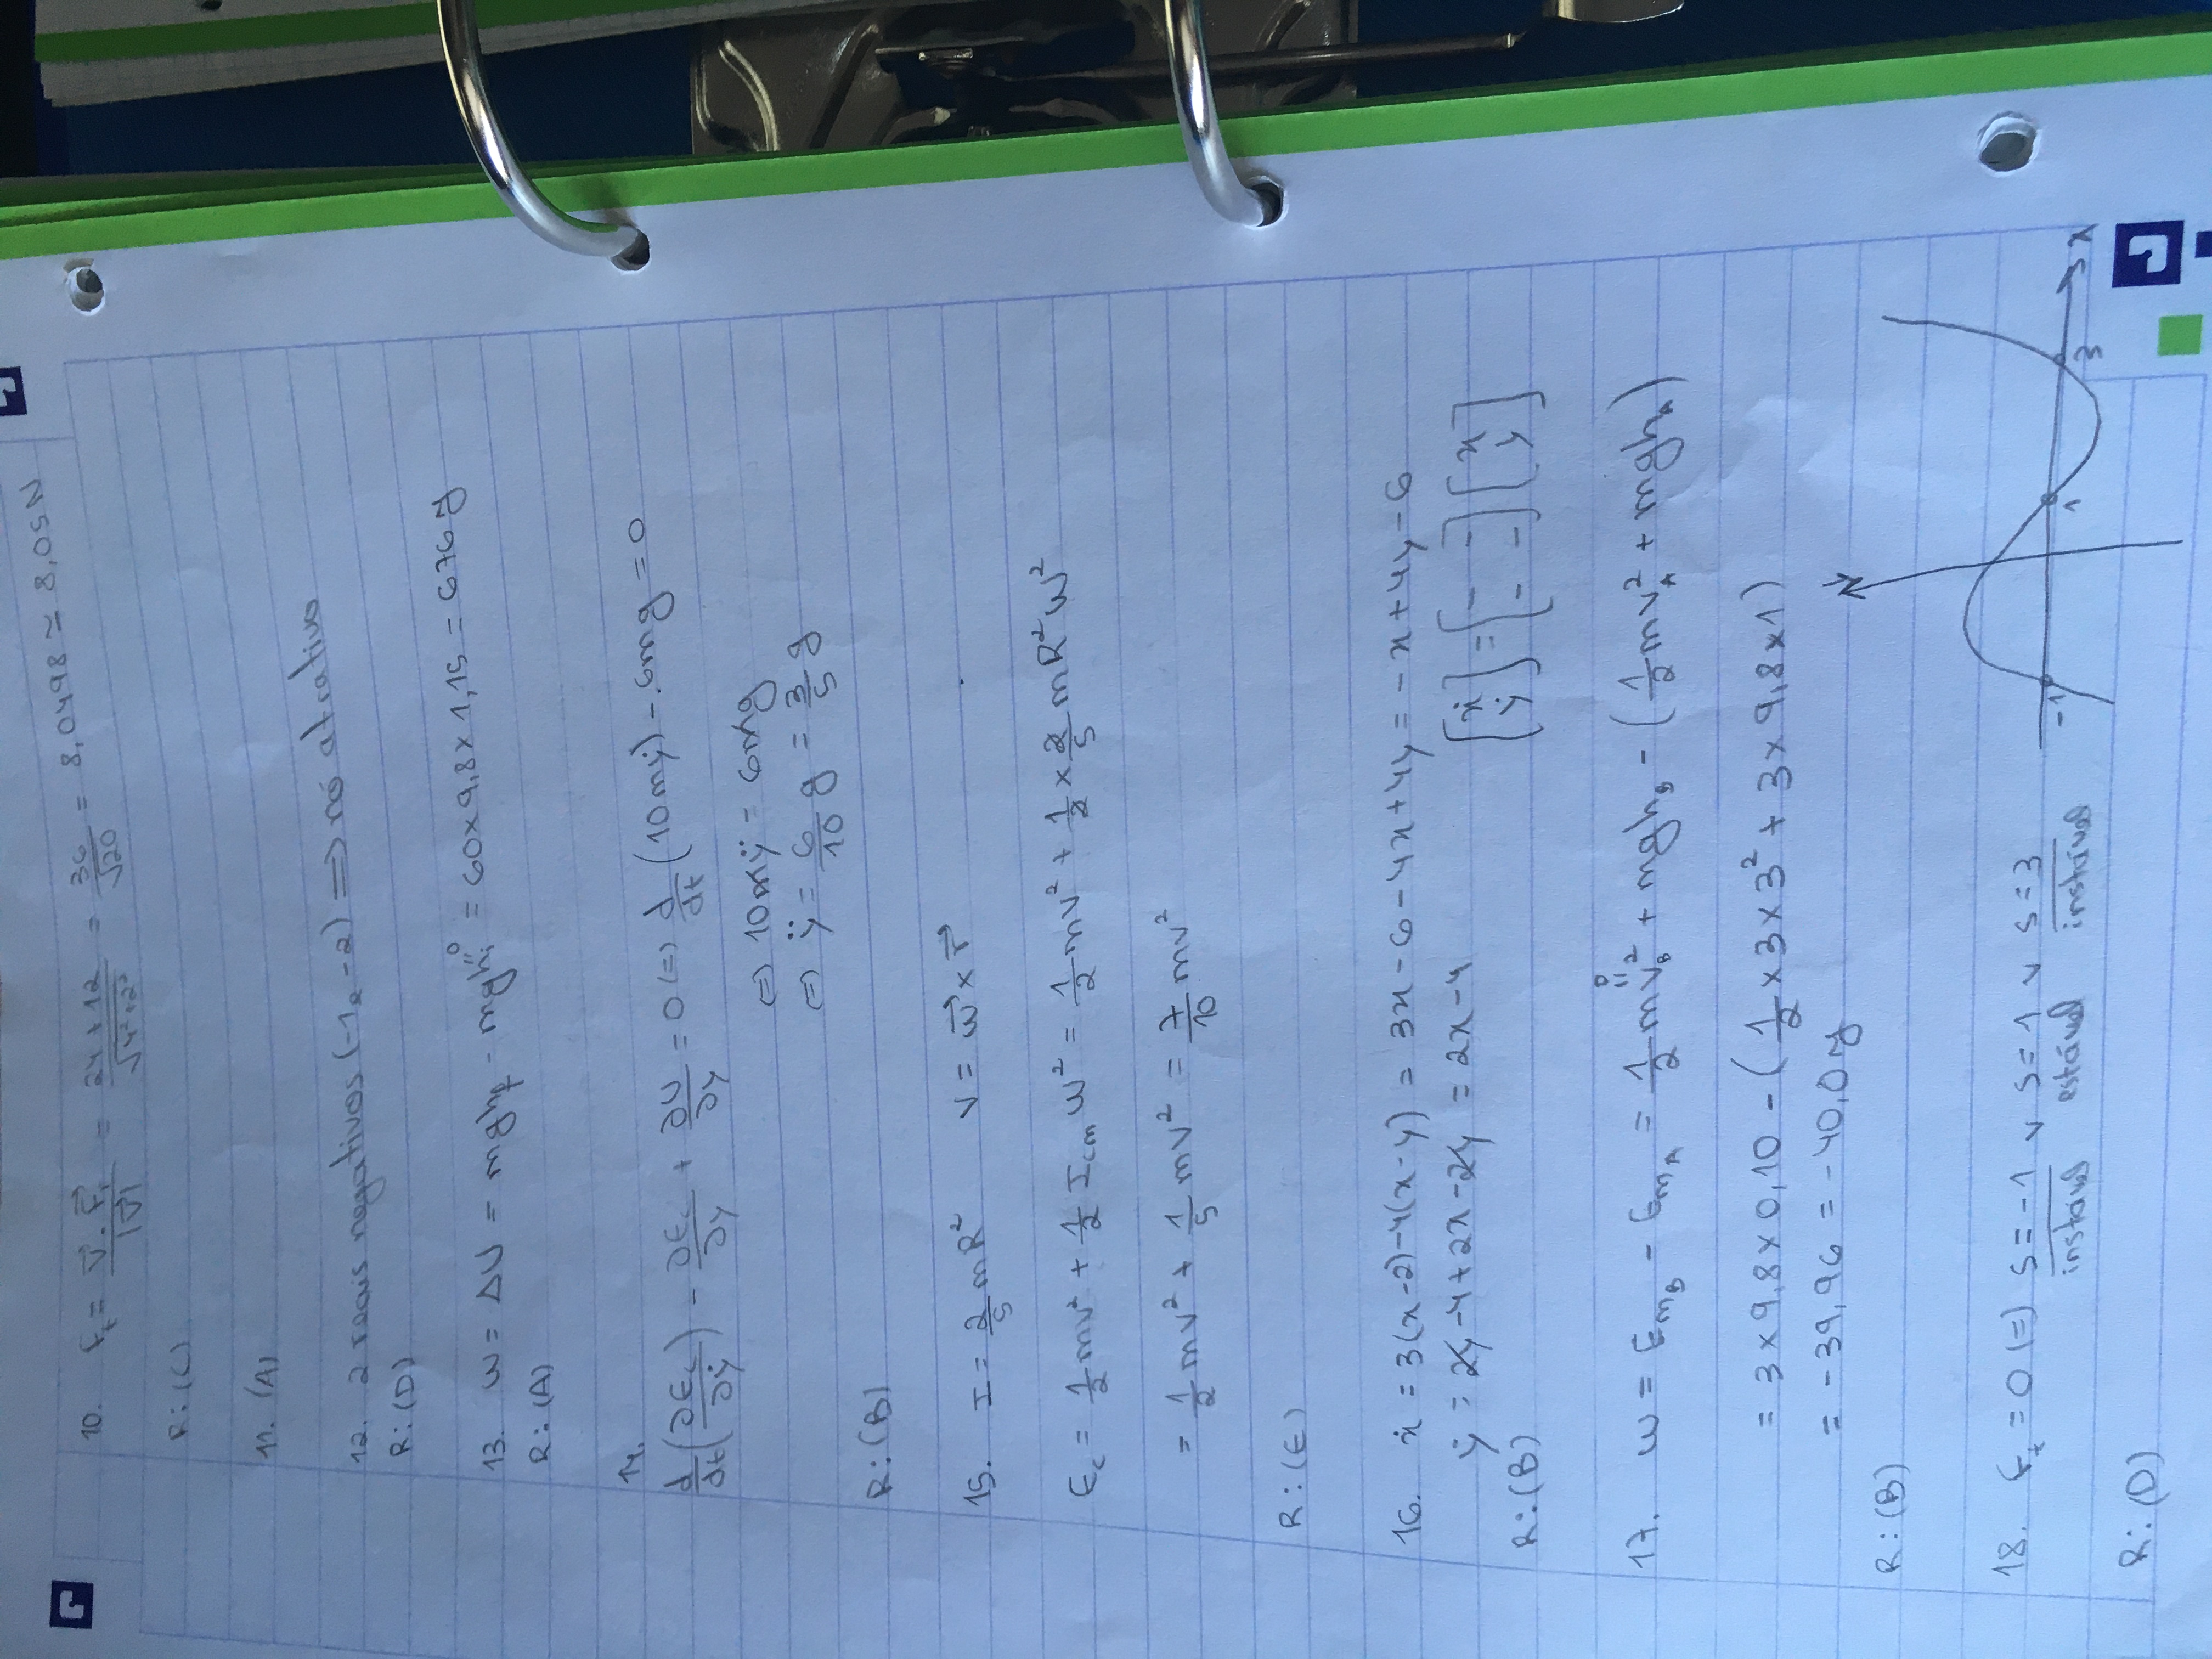 10. F_t = \frac{\vec{v} \cdot \vec{F}_r}{|\vec{v}|} = \frac{24+12}{\sqrt{4^2+2^2}} = \frac{36}{\sqrt{20}} = 8,0498 ≃ 8,05N
R: (C)
11. (A)
12. 2 reais negativos (-1 e -2) ⟹ nó atrativo
R: (D)
13. W = ΔU = mgh_f - mgh_i^{=0} = 60×9,8×1,15 = 676 J
R: (A)
14.
\frac{d}{dt}(\frac{∂E_c}{∂ẏ}) - \frac{∂E_c}{∂y} + \frac{∂U}{∂y} = 0 (=) \frac{d}{dt}(10mẏ) - 6mg = 0
(=) 10mÿ = 6mg
(=) ÿ = \frac{6}{10} g = \frac{3}{5} g
R: (B)
15. I = \frac{2}{5} mR² V = \vec{w} × \vec{r}
E_c = \frac{1}{2} mv² + \frac{1}{2} I_{cm} W² = \frac{1}{2} mv² + \frac{1}{2} × \frac{2}{5} mR² W²
= \frac{1}{2} mv² + \frac{1}{5} mv² = \frac{7}{10} mv²
R: (E)
16. ẋ = 3(x-2)-4(x-y) = 3x - 6 - 4x + 4y = -x + 4y - 6
ẏ = 2y - 4 + 2x - 2y = 2x - 4
[ẋ ẏ] = [- - - -] [x y]
R: (B)
17. W = E_{m_B} - E_{m_A} = \frac{1}{2} mv_B^2 + mgh_B - (\frac{1}{2} mv_A^2 + mgh_A)
0
= 3×9,8×0,10 - (\frac{1}{2} × 3 × 3² + 3 × 9,8 × 1)
= -39,96 = -40,0 J
R: (B)
18. F_t = 0 (=) s = -1 ∨ s = 1 ∨ s = 3
instável estável instável
-1 1 3 x
R: (D)